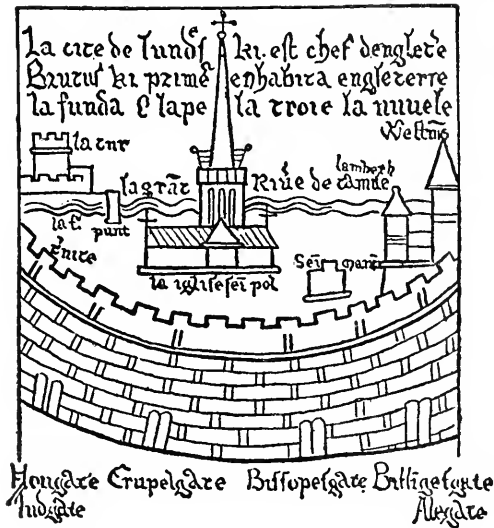 La cite de lundrẽ ki est chef dengletre
Brutus ki primẽ enhabita engleterre
la funda & lape la troie la nuuele
Westmĩ
la tur
lambeth
la grãt Riũe de tamise
la f. punt
Trĩite
Seĩ marĩ
la iglise seĩ pol
Hougate Crupelgate Bissopesgate Billigesgate
ludgate Alegate